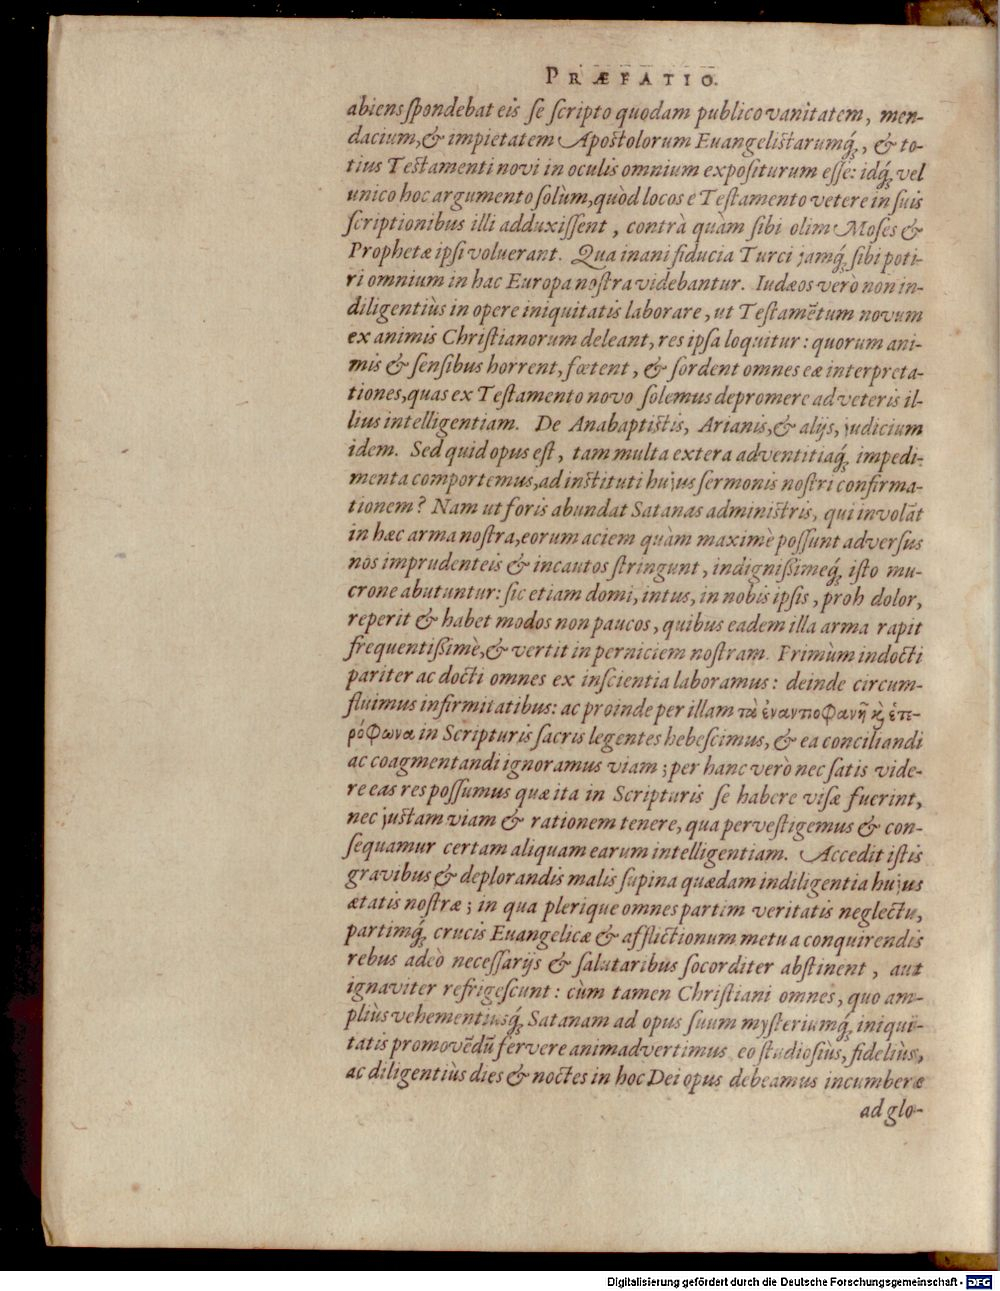 PRÆFATIO.
abiens spondebat eis se scripto quodam publico vanitatem, men-
dacium, & impietatem Apostolorum Euangelistarumq́;, & to-
tius Testamenti novi in oculis omnium expositurum esse: idq́; vel
unico hoc argumento solùm, quòd locos e Testamento vetere in suis
scriptionibus illi adduxissent, contrà quàm sibi olim Moses &
Prophetæ ipsi voluerant. Qua inani fiducia Turci jamq́; sibi poti-
ri omnium in hac Europa nostra videbantur. Iudæos verò non in-
diligentiùs in opere iniquitatis laborare, ut Testamẽtum novum
ex animis Christianorum deleant, res ipsa loquitur: quorum ani-
mis & sensibus horrent, fœtent, & sordent omnes eæ interpreta-
tiones, quas ex Testamento novo solemus depromere ad veteris il-
lius intelligentiam. De Anabaptistis, Arianis, & alijs, judicium
idem. Sed quid opus est, tam multa extera adventitiaq́; impedi-
menta comportemus, ad instituti hujus sermonis nostri confirma-
tionem? Nam ut foris abundat Satanas administris, qui involãt
in hæc arma nostra, eorum aciem quàm maximè possunt adversus
nos imprudenteis & incautos stringunt, indignißimeq́; isto mu-
crone abutuntur: sic etiam domi, intus, in nobis ipsis, proh dolor,
reperit & habet modos non paucos, quibus eadem illa arma rapit
frequentißimè, & vertit in perniciem nostram. Primùm indocti
pariter ac docti omnes ex inscientia laboramus: deinde circum-
fluimus infirmitatibus: ac proinde per illam τὰ ἐναντιοφανῆ κ̀ ἑτε-
ρόφωνα in Scripturis sacris legentes hebescimus, & ea conciliandi
ac coagmentandi ignoramus viam; per hanc verò nec satis vide-
re eas res possumus quæ ita in Scripturis se habere visæ fuerint,
nec justam viam & rationem tenere, qua pervestigemus & con-
sequamur certam aliquam earum intelligentiam. Accedit istis
gravibus & deplorandis malis supina quædam indiligentia hujus
ætatis nostræ; in qua plerique omnes partim veritatis neglectu,
partimq́; crucis Euangelicæ & afflictionum metu a conquirendis
rebus adeò necessarijs & salutaribus socorditer abstinent, aut
ignaviter refrigescunt: cùm tamen Christiani omnes, quo am-
pliùs vehementiusq́; Satanam ad opus suum mysteriumq́; iniqui-
tatis promovẽdũ fervere animadvertimus eo studiosiùs, fideliùs,
ac diligentiùs dies & noctes in hoc Dei opus debeamus incumbere
ad glo-
Digitalisierung gefördert durch die Deutsche Forschungsgemeinschaft - DFG